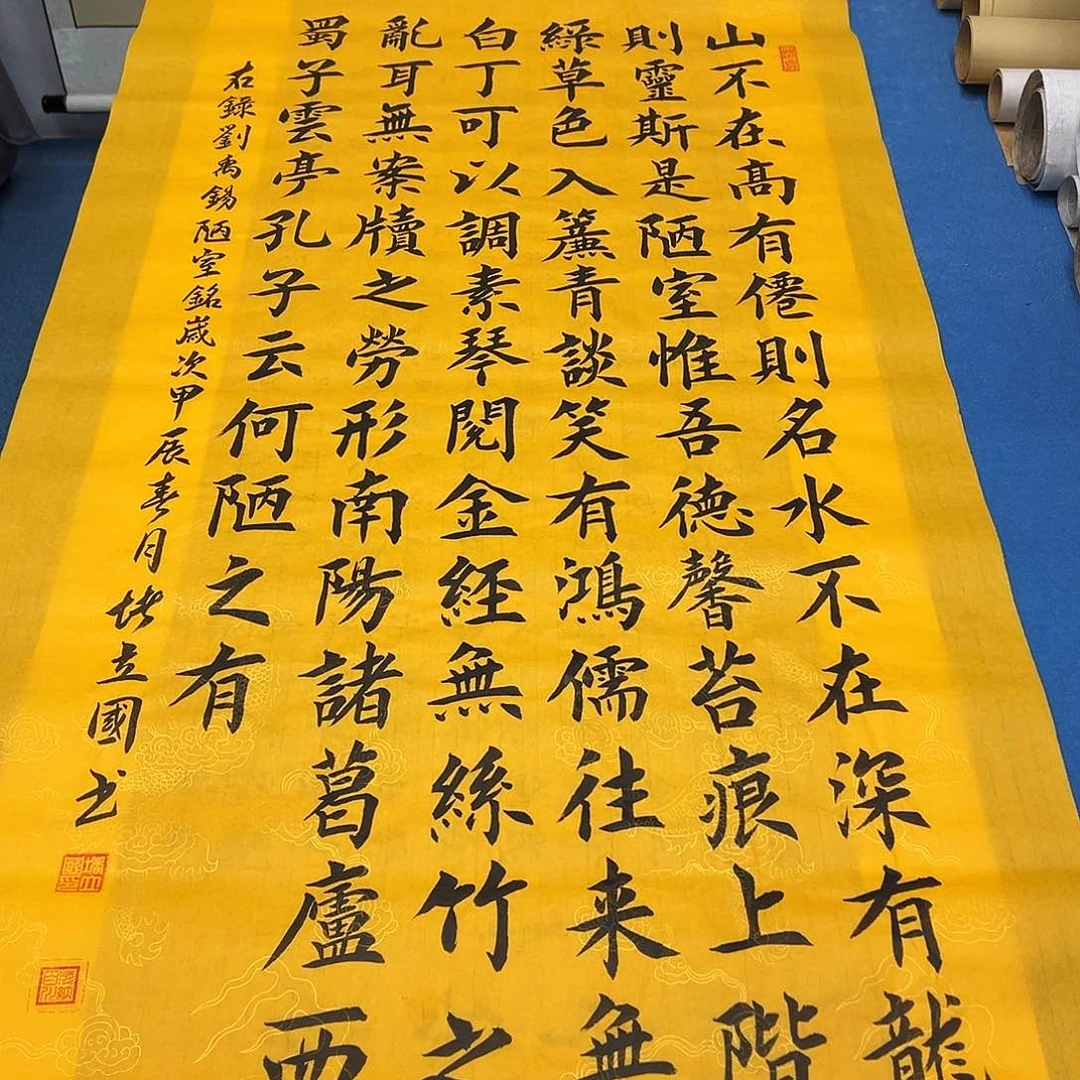 山不在高有僊則名水不在深有龍
則靈斯是陋室惟吾德馨苔痕上階
綠草色入簾青談笑有鴻儒往来無
白丁可以調素琴閱金經無絲竹之
亂耳無案牘之勞形南陽諸葛廬西
蜀子雲亭孔子云何陋之有
右録劉禹錫陋室銘歲次甲辰春月 立國书